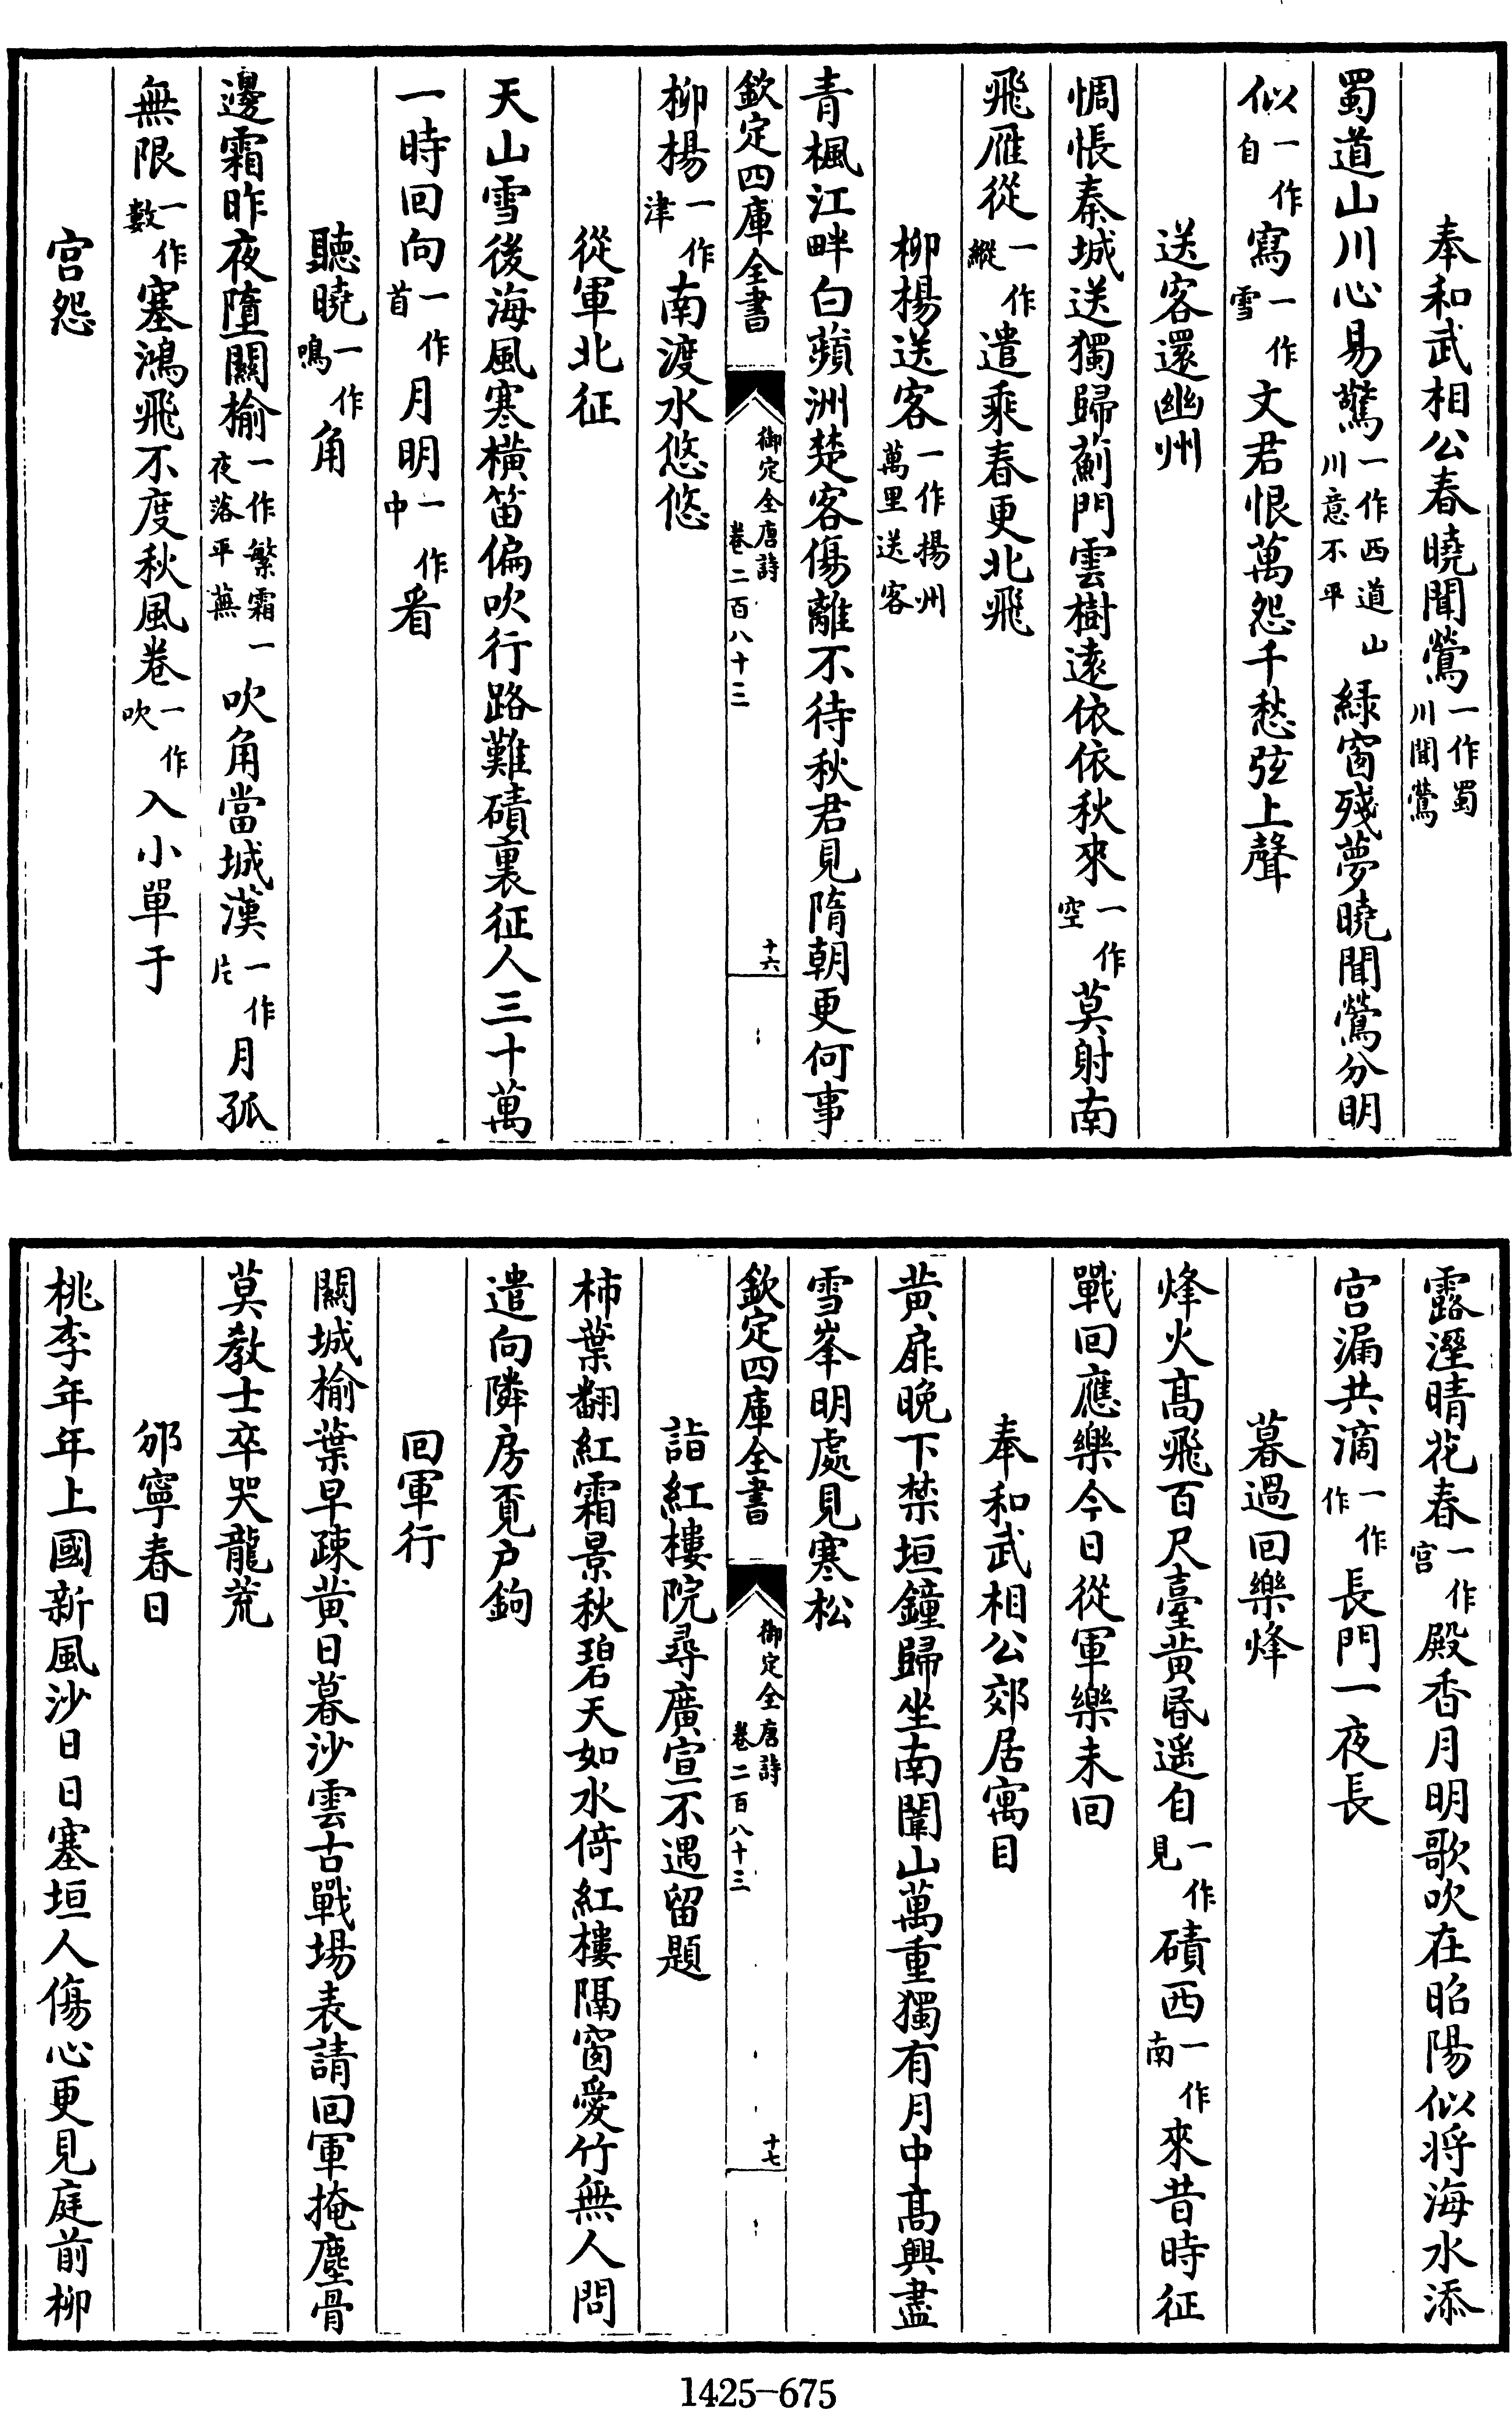 奉和武相公春曉聞鶯一作蜀川聞鶯
蜀道山川心易驚一作西道山川意不平綠窗殘夢曉聞鶯分明
似一作自寫一作雪文君恨萬怨千愁弦上聲
送客還幽州
惆悵秦城送獨歸薊門雲樹遠依依秋來一作空莫射南
飛雁從一作縱遣乘春更北飛
柳楊送客一作揚州萬里送客
青楓江畔白蘋洲楚客傷離不待秋君見隋朝更何事
欽定四庫全書
御定全唐詩
卷二百八十三
十六
柳楊一作津南渡水悠悠
從軍北征
天山雪後海風寒橫笛偏吹行路難磧裏征人三十萬
一時回向一作首月明一作中看
聽曉一作鳴角
邊霜昨夜墮關榆一作繁霜一夜落平蕪吹角當城漢一作片月孤
無限一作數塞鴻飛不度秋風卷一作吹入小單于
宮怨
露溼晴花春一作宮殿香月明歌吹在昭陽似將海水添
宮漏共滴一作作長門一夜長
暮過回樂烽
烽火高飛百尺臺黃昏遥自一作見磧西一作南來昔時征
戰回應樂今日從軍樂未回
奉和武相公郊居寓目
黃扉晚下禁垣鐘歸坐南闈山萬重獨有月中高興盡
雪峯明處見寒松
欽定四庫全書
御定全唐詩
卷二百八十三
十七
詣紅樓院尋廣宣不遇留題
柿葉翻紅霜景秋碧天如水倚紅樓隔窗愛竹無人問
遣向隣房覔户鉤
回軍行
關城榆葉早疎黃日暮沙雲古戰場表請回軍掩塵骨
莫教士卒哭龍荒
邠寧春日
桃李年年上國新風沙日日塞垣人傷心更見庭前柳
1425-675